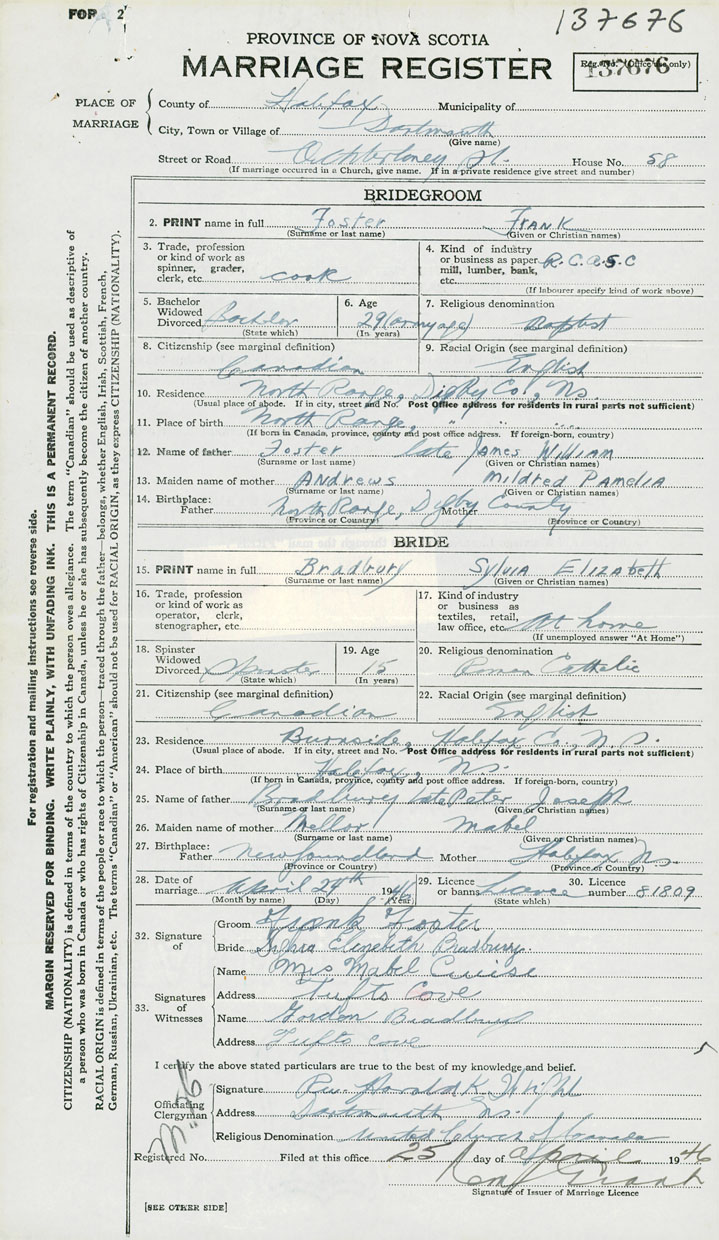 FOR 2
137676
PROVINCE OF NOVA SCOTIA
MARRIAGE REGISTER
Reg. No. (Office use only)
137676
PLACE OF MARRIAGE
County of Halifax Municipality of
City, Town or Village of Dartmouth
(Give name)
Street or Road Ochterloney St. House No. 58
(If marriage occurred in a Church, give name. If in a private residence give street and number)
BRIDEGROOM
2. PRINT name in full Foster Frank
(Surname or last name) (Given or Christian names)
3. Trade, profession or kind of work as spinner, grader, clerk, etc. cook
4. Kind of industry or business as paper mill, lumber, bank, etc. R.C.A.S.C
(If labourer specify kind of work above)
5. Bachelor Widowed Divorced Bachelor
(State which)
6. Age 29 (army age)
(In years)
7. Religious denomination Baptist
8. Citizenship (see marginal definition) Canadian
9. Racial Origin (see marginal definition) English
10. Residence North Range, Digby Co., N.S.
(Usual place of abode. If in city, street and No. Post Office address for residents in rural parts not sufficient)
11. Place of birth North Range, " "
(If born in Canada, province, county and post office address. If foreign-born, country)
12. Name of father Foster late James William
(Surname or last name) (Given or Christian names)
13. Maiden name of mother Andrews Mildred Pamelia
(Surname or last name) (Given or Christian names)
14. Birthplace: Father North Range, Digby County Mother
(Province or Country) (Province or Country)
BRIDE
15. PRINT name in full Bradbury Sylvia Elizabeth
(Surname or last name) (Given or Christian names)
16. Trade, profession or kind of work as operator, clerk, stenographer, etc.
17. Kind of industry or business as textiles, retail, law office, etc. At home
(If unemployed answer "At Home")
18. Spinster Widowed Divorced Spinster
(State which)
19. Age 15
(In years)
20. Religious denomination Roman Catholic
21. Citizenship (see marginal definition) Canadian
22. Racial Origin (see marginal definition) English
23. Residence Burnside, Halifax Co., N.S.
(Usual place of abode. If in city, street and No. Post Office address for residents in rural parts not sufficient)
24. Place of birth Halifax, N.S.
(If born in Canada, province, county and post office address. If foreign-born, country)
25. Name of father Bradbury late Peter Joseph
(Surname or last name) (Given or Christian names)
26. Maiden name of mother Mellor Mabel
(Surname or last name) (Given or Christian names)
27. Birthplace: Father Newfoundland Mother Halifax N.S.
(Province or Country) (Province or Country)
28. Date of marriage April 29th 1946
(Month by name) (Day) (Year)
29. Licence or banns Licence
(State which)
30. Licence number 81809
32. Signature of
Groom Frank Foster
Bride Sylvia Elizabeth Bradbury
33. Signatures of Witnesses
Name Mrs Mabel
Address Tufts Cove
Name Gordon Bradbury
Address Tufts cove
I certify the above stated particulars are true to the best of my knowledge and belief.
Officiating Clergyman
Signature Rev. Harold K. Wright
Address Dartmouth N.S.
Religious Denomination United Church of Canada
Registered No. Filed at this office 25 day of April 1946
Grant
Signature of Issuer of Marriage Licence
[SEE OTHER SIDE]
For registration and mailing instructions see reverse side.
MARGIN RESERVED FOR BINDING. WRITE PLAINLY, WITH UNFADING INK. THIS IS A PERMANENT RECORD.
CITIZENSHIP (NATIONALITY) is defined in terms of the country to which the person owes allegiance. The term "Canadian" should be used as descriptive of
a person who was born in Canada or who has rights of Citizenship in Canada, unless he or she has subsequently become the citizen of another country.
RACIAL ORIGIN is defined in terms of the people or race to which the person—traced through the father—belongs, whether English, Irish, Scottish, French,
German, Russian, Ukrainian, etc. The terms "Canadian" or "American" should not be used for RACIAL ORIGIN, as they express CITIZENSHIP (NATIONALITY).